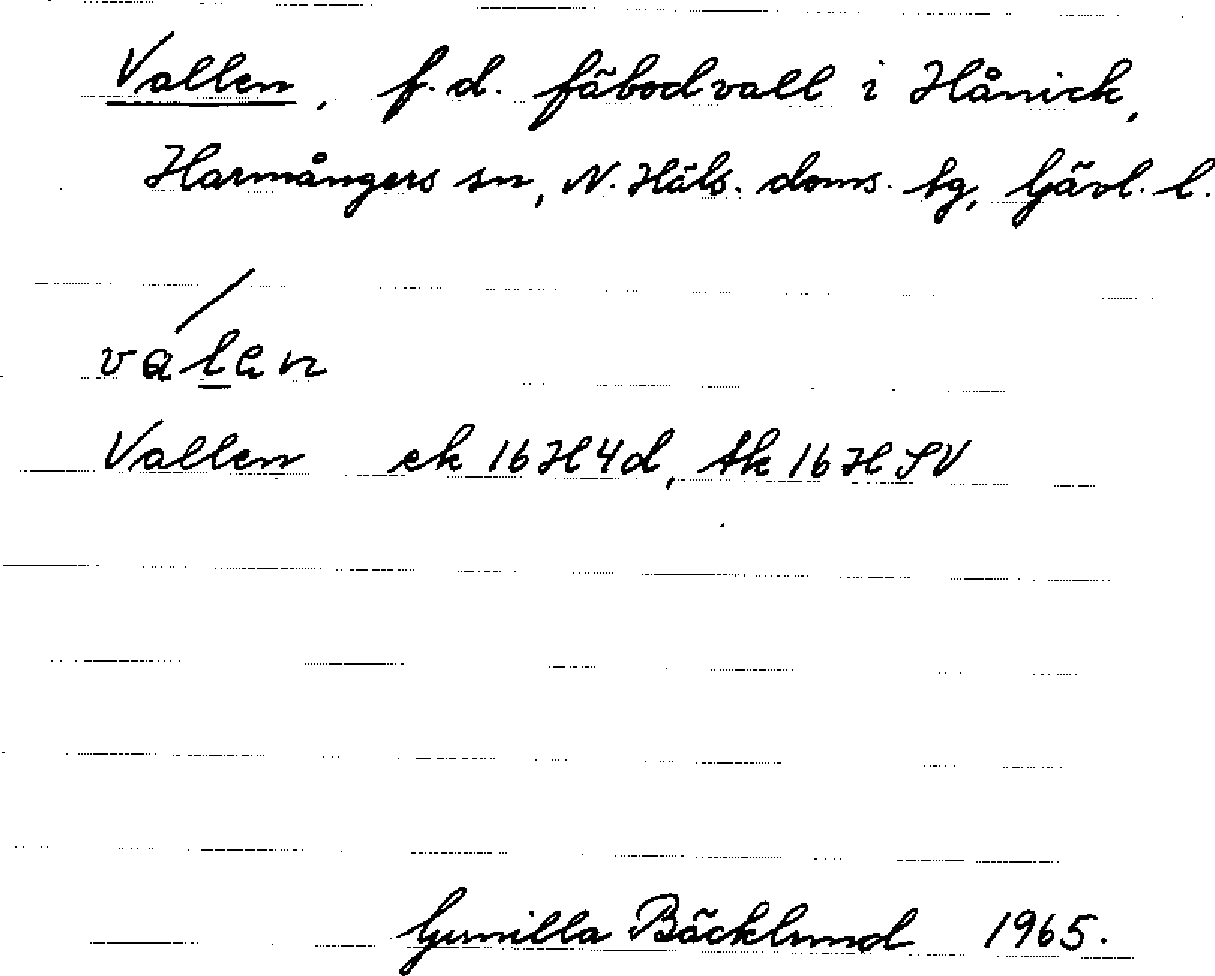 Vallen, f.d. fäbodvall i Hånick,
Harmångers sn, N. Häls. doms. tg, Gävl. l.
valen
Vallen ek 16H4d, tk 16H SV
Gunilla Bäcklund 1965.